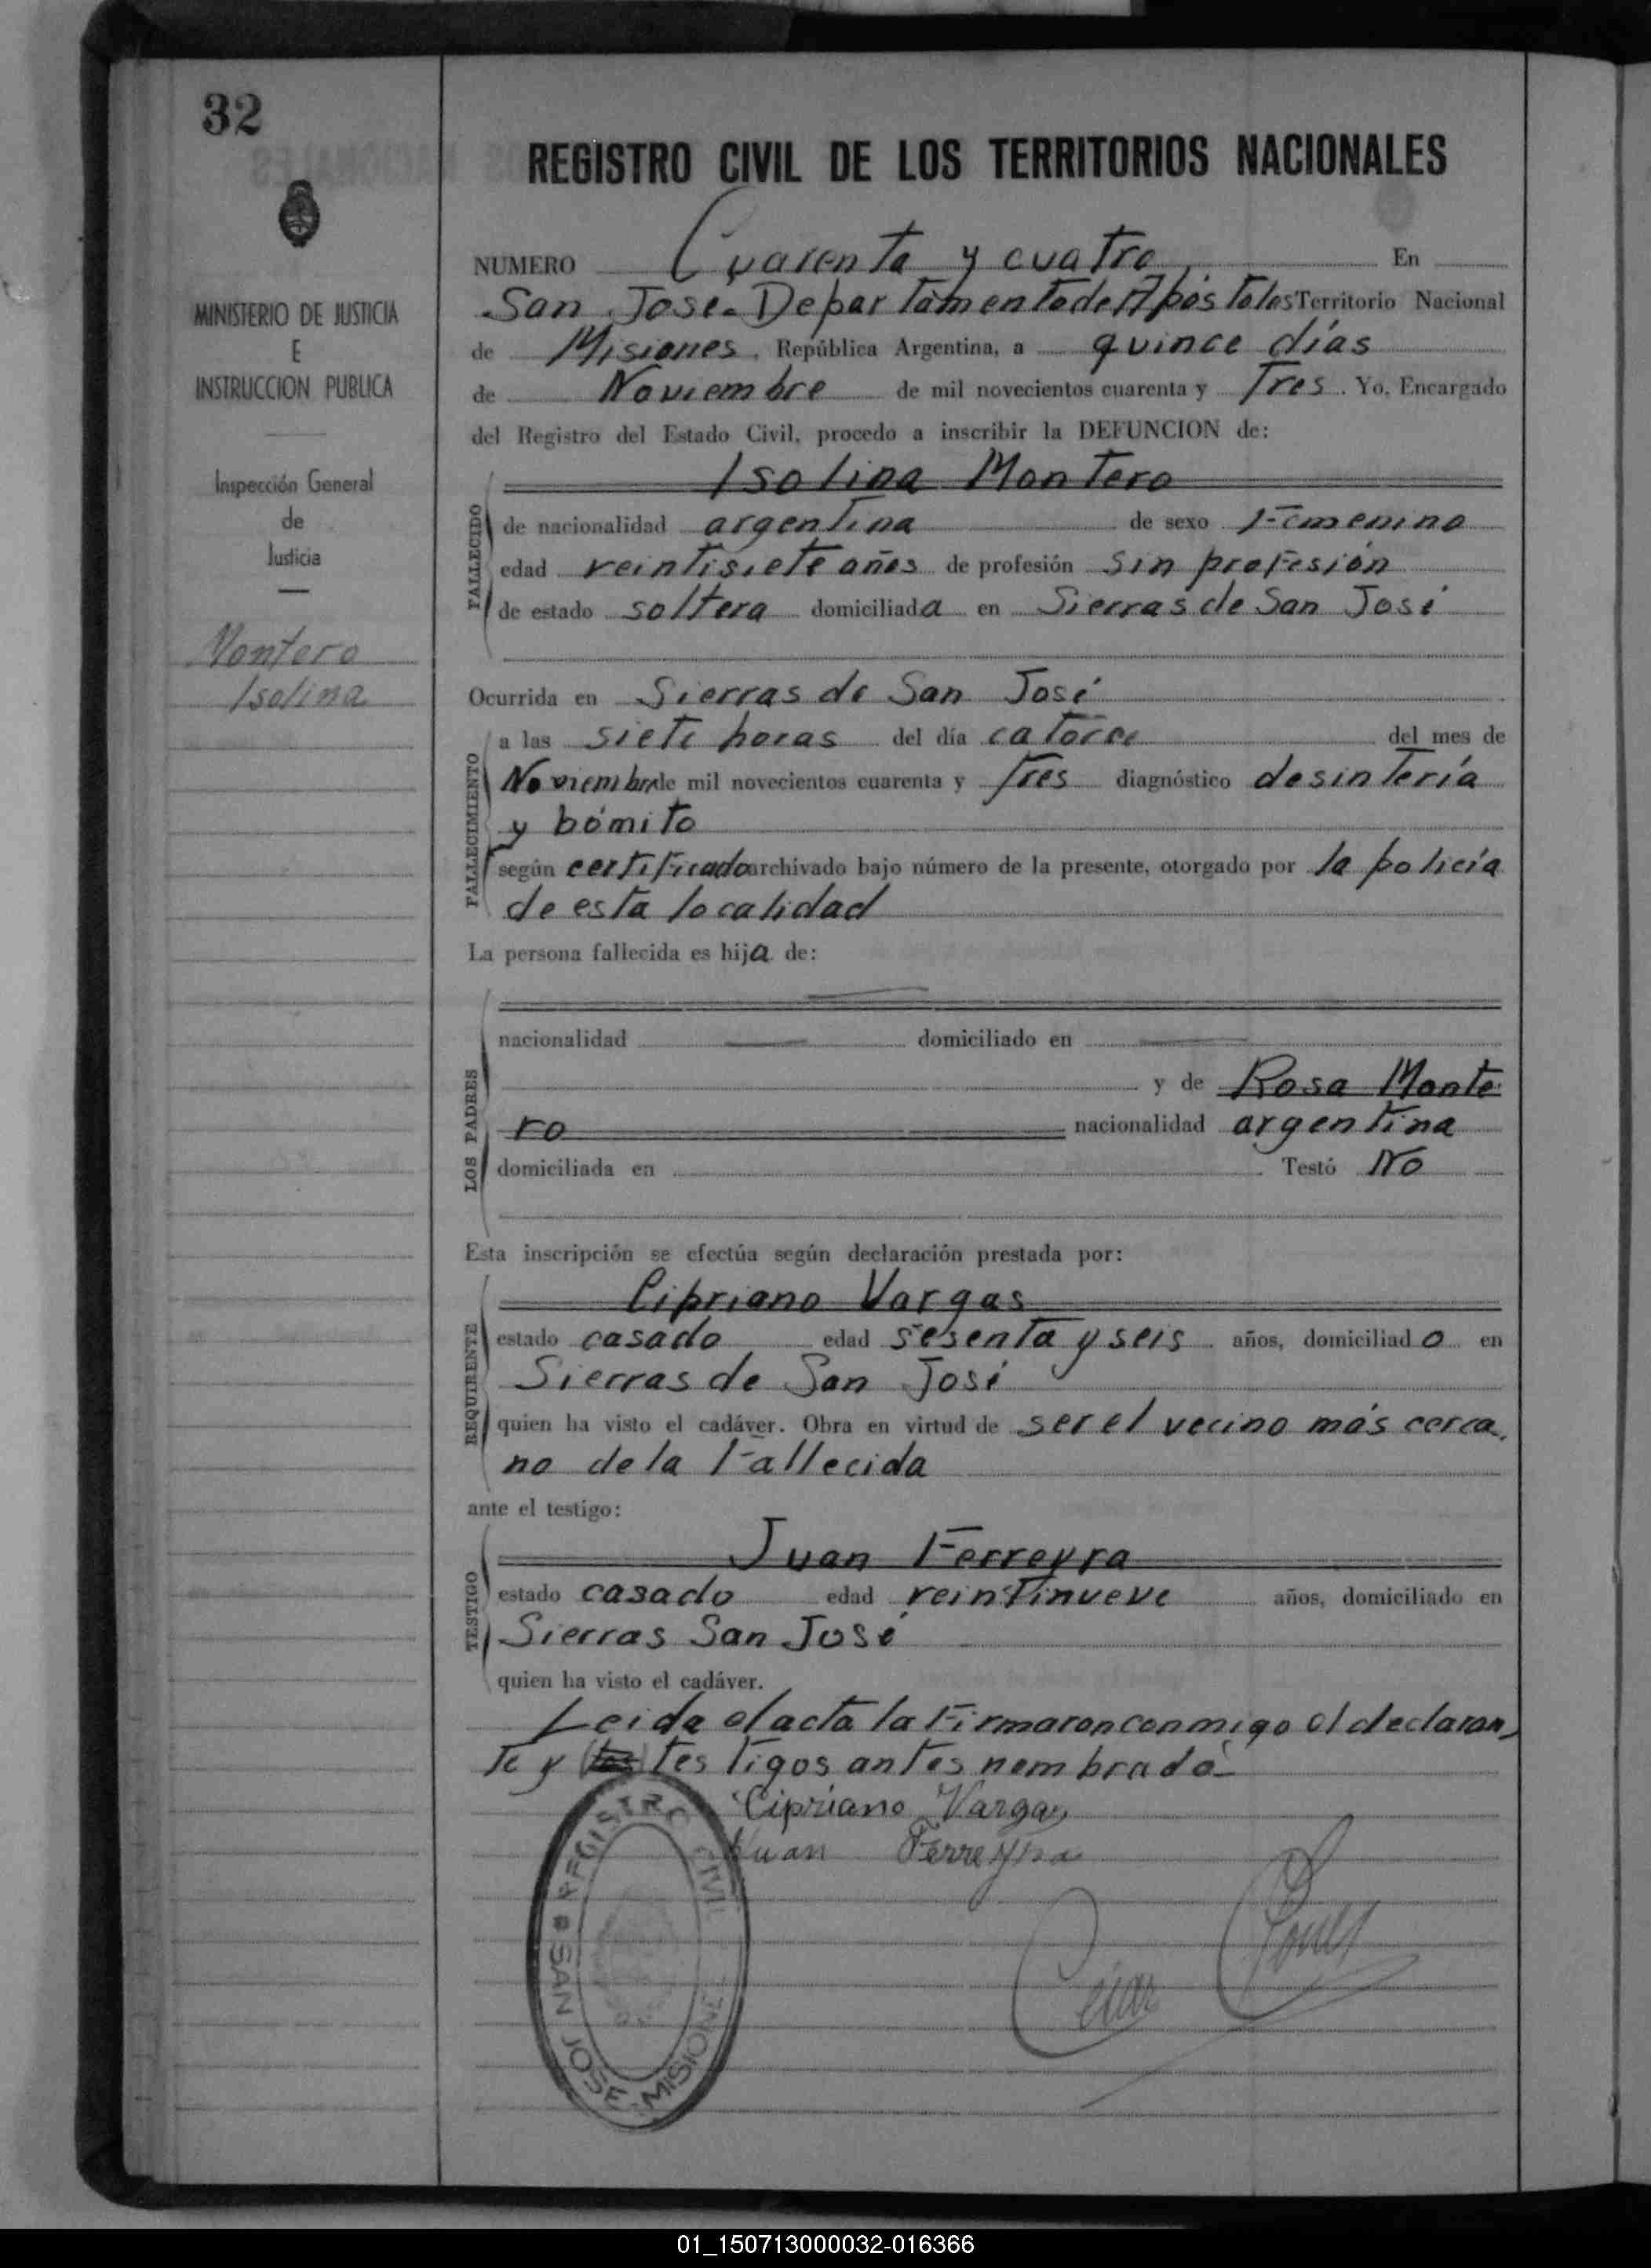 32
MINISTERIO DE JUSTICIA
E
INSTRUCCION PUBLICA
Inspección General
de
Justicia
Montero
Isolina
REGISTRO CIVIL DE LOS TERRITORIOS NACIONALES
NUMERO Cuarenta y cuatro En
San José. Departamento de Apóstoles Territorio Nacional
de Misiones, República Argentina, a quince días
de Noviembre de mil novecientos cuarenta y Tres. Yo, Encargado
del Registro del Estado Civil, procedo a inscribir la DEFUNCION de:
FALLECIDO
Isolina Montero
de nacionalidad argentina de sexo Femenino
edad veintisiete años de profesión sin profesión
de estado soltera domiciliada en Sierras de San José
Ocurrida en Sierras de San José
FALLECIMIENTO
a las siete horas del día catorce del mes de
Noviembre de mil novecientos cuarenta y Tres diagnóstico desintería
y bómito
según certificado archivado bajo número de la presente, otorgado por la policía
de esta localidad
La persona fallecida es hija de:
LOS PADRES
nacionalidad domiciliado en
y de Rosa Monte
ro nacionalidad argentina
domiciliada en Testó No
Esta inscripción se efectúa según declaración prestada por:
REQUIRENTE
Cipriano Vargas
estado casado edad sesenta y seis años, domiciliado en
Sierras de San José
quien ha visto el cadáver. Obra en virtud de ser el vecino más cerca
no de la Fallecida
ante el testigo:
TESTIGO
Juan Ferreyra
estado casado edad veintinueve años, domiciliado en
Sierras San José
quien ha visto el cadáver.
Leida el acta la Firmaron conmigo el declaran
te y testigos antes nombrado
Cipriano Vargas
Juan Ferreyra
REGISTRO CIVIL
SAN JOSE MISIONES
01_150713000032-016366